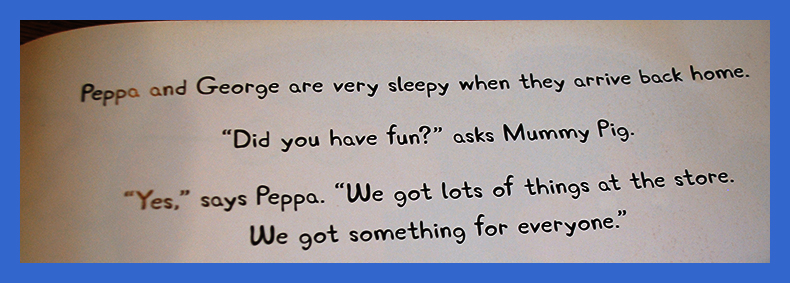 Peppa and George are very sleepy when they arrive back home.
“Did you have fun?” asks Mummy Pig.
“Yes,” says Peppa. “We got lots of things at the store.
We got something for everyone.”